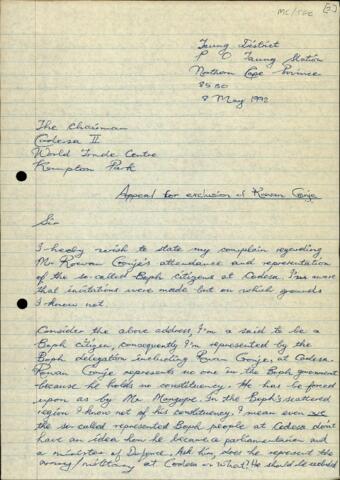 MC/TEE [3]
Taung District
P O Taung Station
Northern Cape Province
8580
8 May 1992
The Chairman
Codesa II
World Trade Centre
Kempton Park
Appeal for exclusion of Rowan Cronje
Sir
I hereby wish to state my complain regarding
Mr Rowan Cronje's attendance and representation
of the so-called Boph citizens at Codesa. I'm aware
that invitations were made but on which grounds
I know not.
Consider the above address, I'm a said to be a
Boph citizen, consequently I'm represented by the
Boph delegation including Rowan Cronje, at Codesa.
Rowan Cronje represents no one in the Boph government
because he holds no constituency. He has be forced
upon us by Mr Mangope. In the Boph's scattered
region I know not of his constituency. I mean even we
the so-called represented Boph people at Codesa don't
have an idea how he became a parliamentarian and
a minister of Defence. Ask him, does he represent the
army/military at Codesa or what? He should be